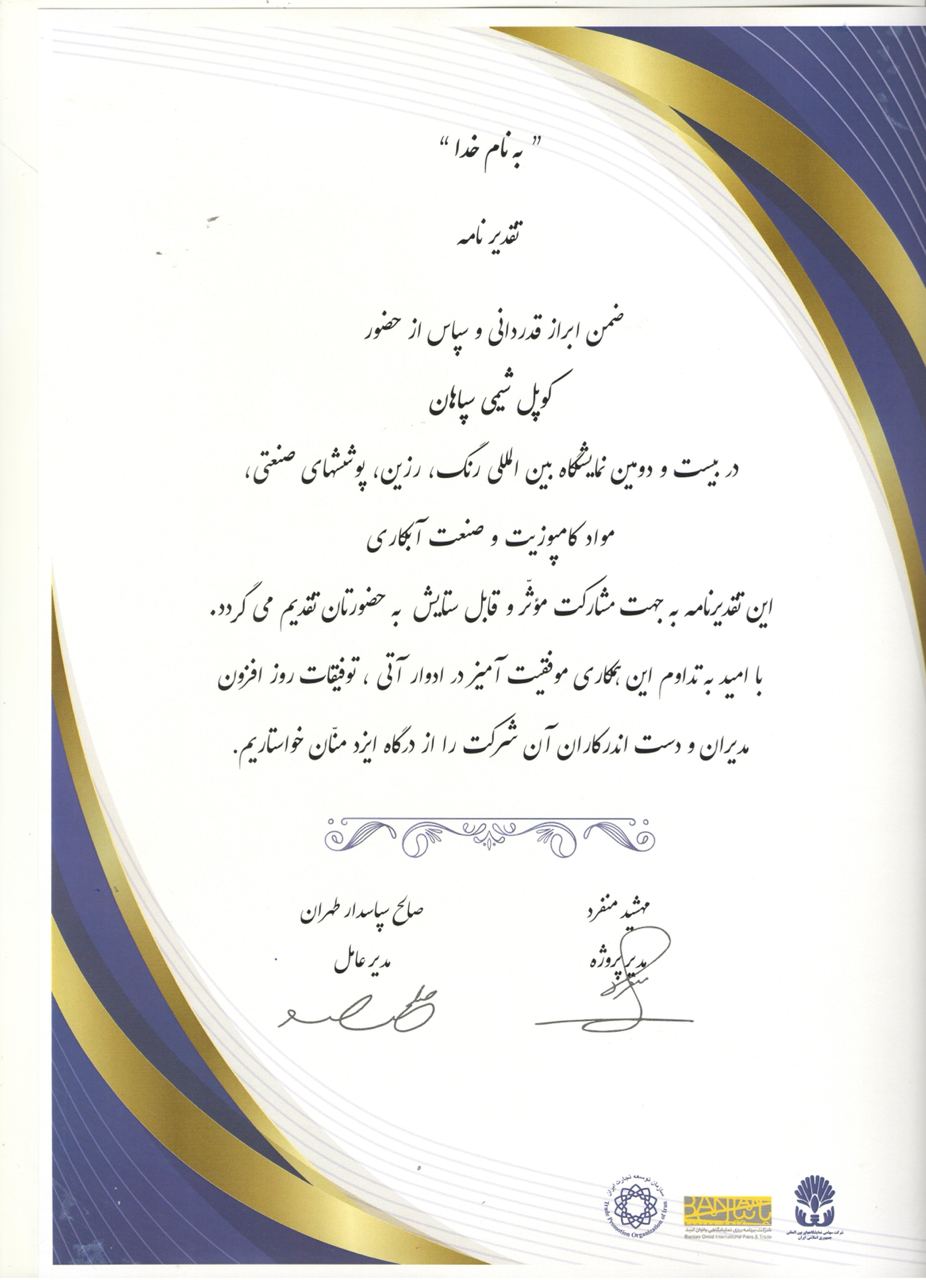 ” به نام خدا “
تقدیر نامه
ضمن ابراز قدردانی و سپاس از حضور
کوپل شیمی سپاهان
در بیست و دومین نمایشگاه بین المللی رنگ، رزین، پوششهای صنعتی،
مواد کامپوزیت و صنعت آبکاری
این تقدیرنامه به جهت مشارکت مؤثّر و قابل ستایش به حضورتان تقدیم می گردد.
با امید به تداوم این همکاری موفقیت آمیز در ادوار آتی ، توفیقات روز افزون
مدیران و دست اندرکاران آن شرکت را از درگاه ایزد منّان خواستاریم.
مهشید منفرد
مدیر پروژه
صالح سپاسدار طهران
مدیر عامل
شرکت سهامی نمایشگاههای بین المللی
جمهوری اسلامی ایران
BANIAN
بانیان
شرکت برنامه ریزی نمایشگاهی بانیان امید
Banian Omid International Fairs & Trade
سازمان توسعه تجارت ایران
Trade Promotion Organization of Iran